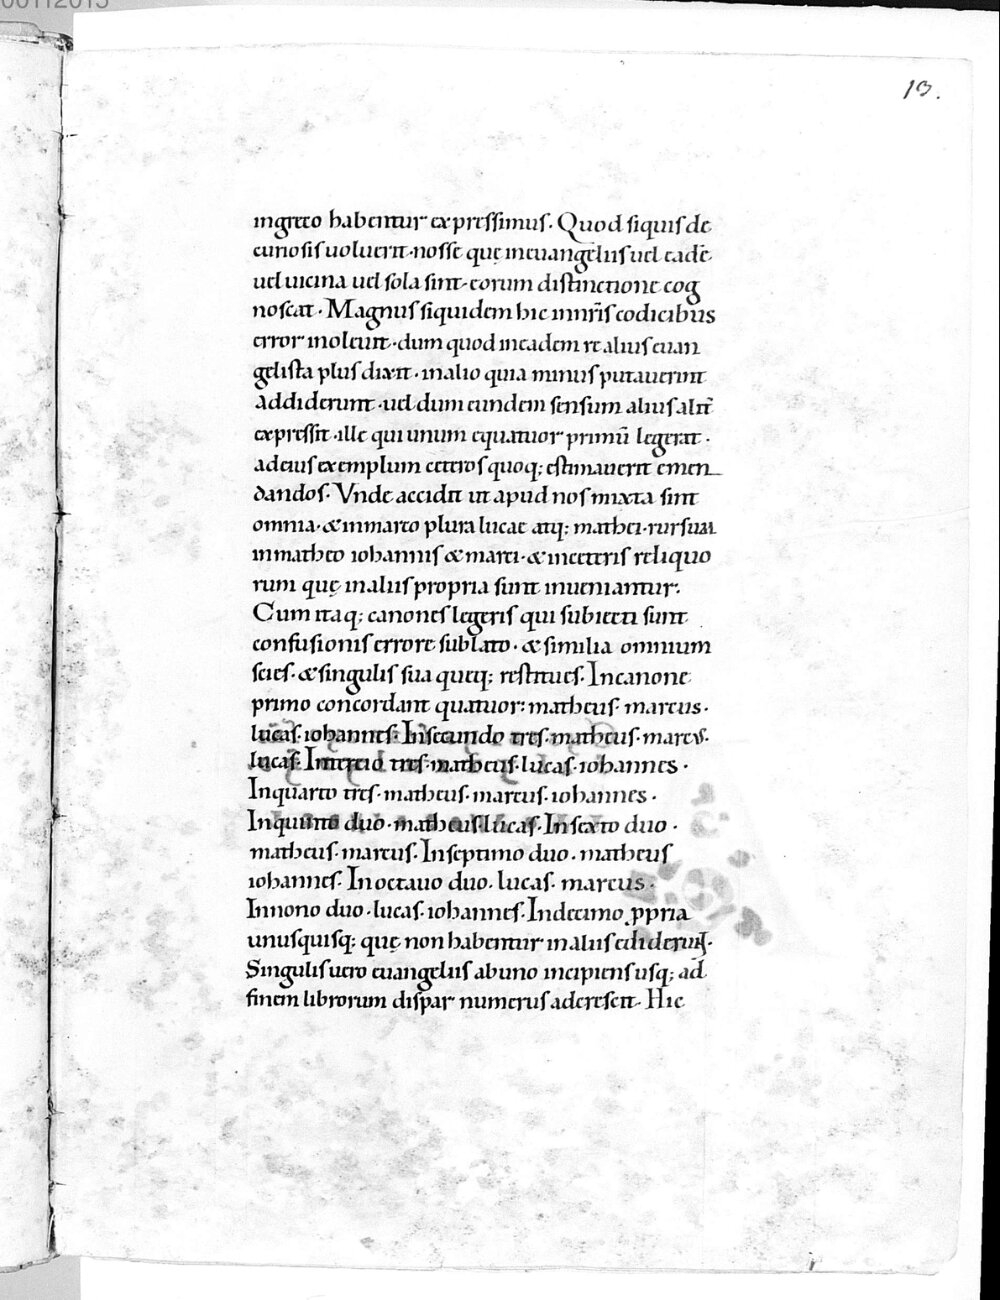 13.
ingreco habentur expressimus. Quod siquis de
curiosis uoluerit nosse quę ineuangeliis uel eadē
uel uicina uel sola sint. eorum distinctione cog
noscat. Magnus siquidem hic innr̄is codicibus
error inoleuit. dum quod ineadem re alius euan
gelista plus dixit. inalio quia minus putauerint
addiderunt. uel dum eundem sensum alius alit̄
expressit. ille qui unum equatuor primū legerat.
adeius exemplum ceteros quoq; estimauerit emen
dandos. Vnde accidit ut apud nos mixta sint
omnia. & inmarco plura lucae atq; mathei. rursum
inmatheo iohannis & marci. & inceteris reliquo
rum quę inaliis propria sunt inueniantur.
Cum itaq; canones legeris qui subiecti sunt
confusionis errore sublato. & similia omnium
scies. & singulis sua queq; restitues. Incanone
primo concordant quatuor: matheus. marcus.
lucas. iohannes. Insecundo tres. matheus. marcus.
lucas. Intercio tres. matheus. lucas. iohannes.
Inquarto tres. matheus. marcus. iohannes.
Inquinto duo. matheus. lucas. Insexto duo.
matheus. marcus. Inseptimo duo. matheus
iohannes. Inoctauo duo. lucas. marcus.
Innono duo. lucas. iohannes. Indecimo ꝓpria
unusquisq; quę non habentur inaliis ediderunt.
Singulis uero euangeliis abuno incipiens usq; ad
finem librorum dispar numerus adcrescit. Hic